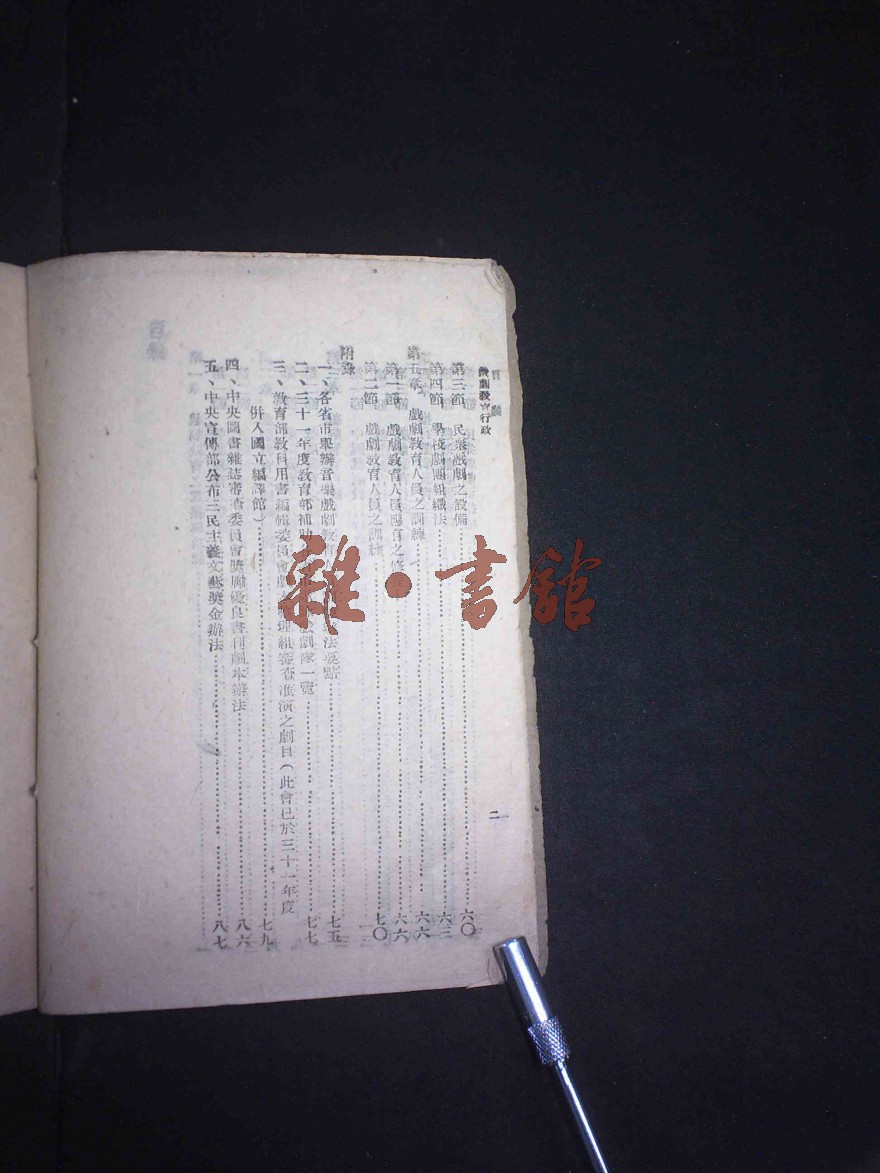 戲劇教育行政 目錄 二
第三節 民衆戲劇之設備 六〇
第四節 學校劇團組織法 六三
第五章 戲劇教育人員之訓練 六六
第一節 戲劇教育人員應有之修養 六六
第二節 戲劇教育人員之訓練 七〇
附錄
一、各省市舉辦音樂戲劇教育 法要點 七五
二、三十一年度教育部補助 戲劇隊一覽 七七
三、教育部教科用書編輯委員會劇 理組審查准演之劇目(此會已於三十一年度
併入國立編譯館) 七九
四、中央圖書雜誌審查委員會獎勵優良書刊劇本辦法 八六
五、中央宣傳部公布三民主義文藝獎金辦法 八七
雜·書館